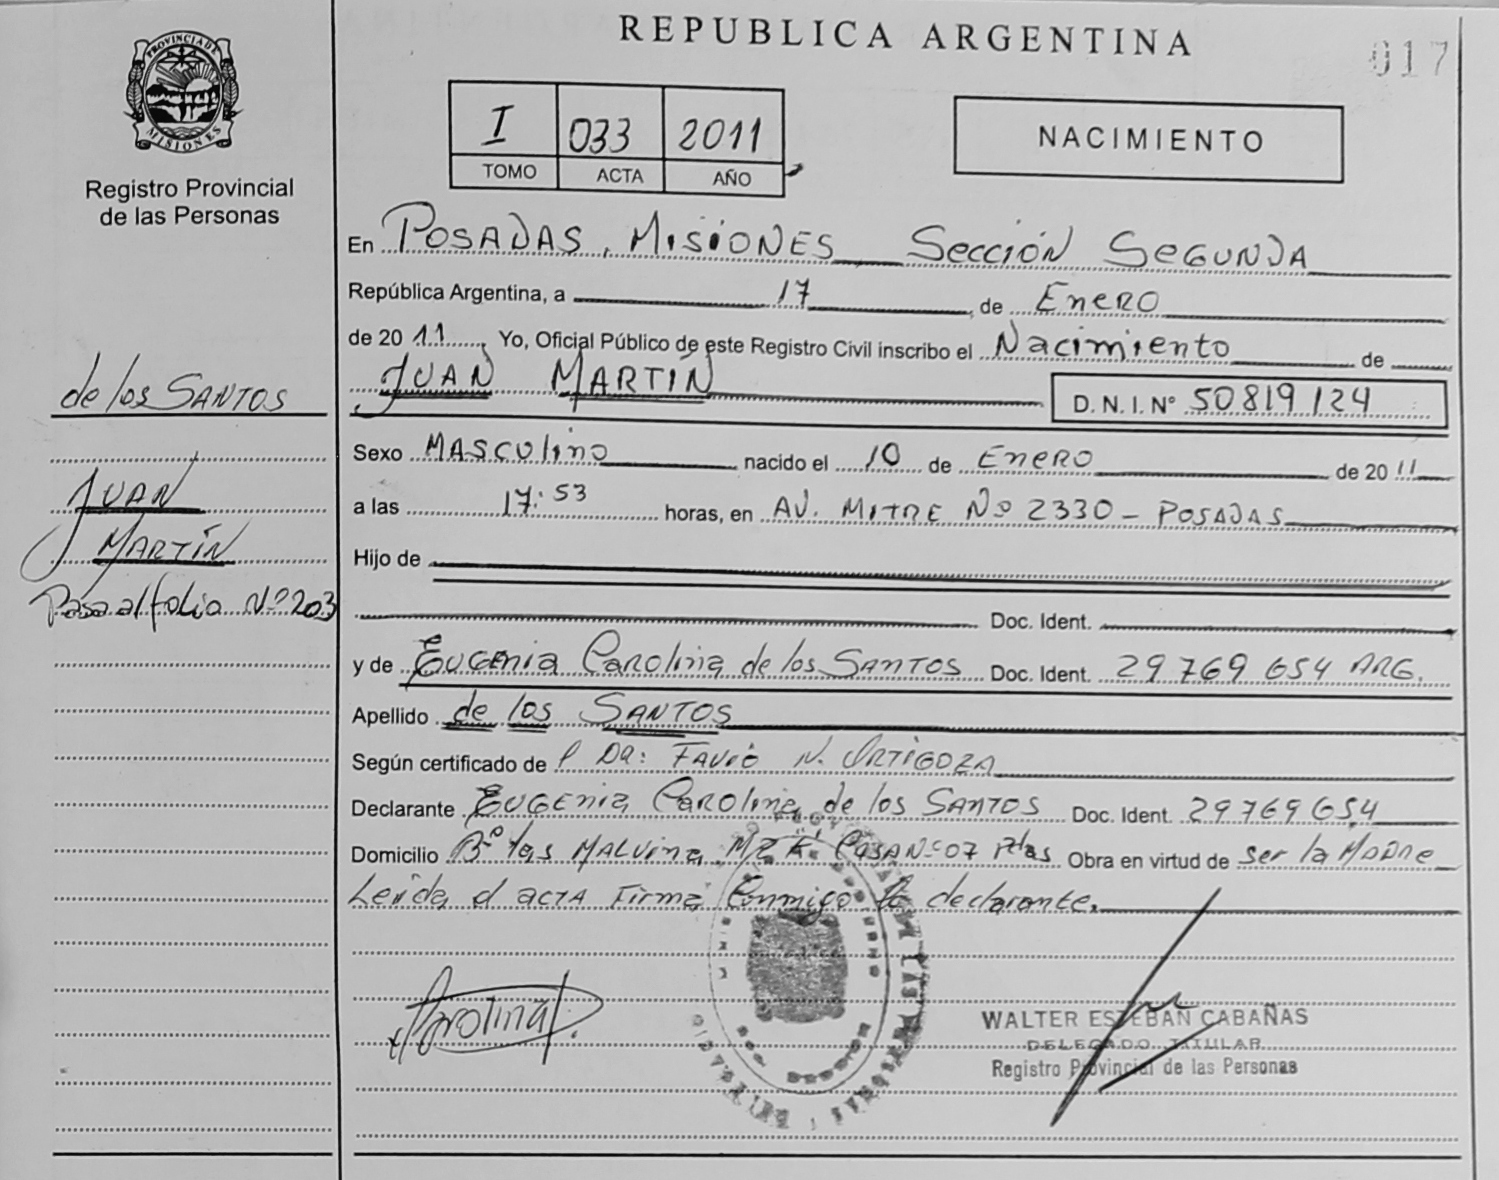 REPUBLICA ARGENTINA
017
PROVINCIA DE
MISIONES
Registro Provincial
de las Personas
I 033 2011
TOMO ACTA AÑO
NACIMIENTO
En POSADAS, MISIONES Sección SEGUNDA
República Argentina, a 17 de ENERO
de 20 11, Yo, Oficial Público de este Registro Civil inscribo el Nacimiento de
JUAN MARTIN D. N. I. N° 50819124
Sexo MASCULINO nacido el 10 de ENERO de 20 11
a las 17:53 horas, en AV. MITRE Nº 2330 - POSADAS
Hijo de
Doc. Ident.
y de EUGENIA CAROLINA de los SANTOS Doc. Ident. 29 769 654 ARG.
Apellido de los SANTOS
Según certificado de DR: FAVIO N. ORTIGOZA
Declarante EUGENIA CAROLINA de los SANTOS Doc. Ident. 29769654
Domicilio Bº las MALVINA MZ K CASA Nº 07 Pdas Obra en virtud de ser la MADRE
Leída el ACTA Firma Conmigo la declarante.
de los SANTOS
JUAN
MARTÍN
Pasa al folio Nº 203
Carolina
WALTER ESTEBAN CABAÑAS
DELEGADO TITULAR
Registro Provincial de las Personas